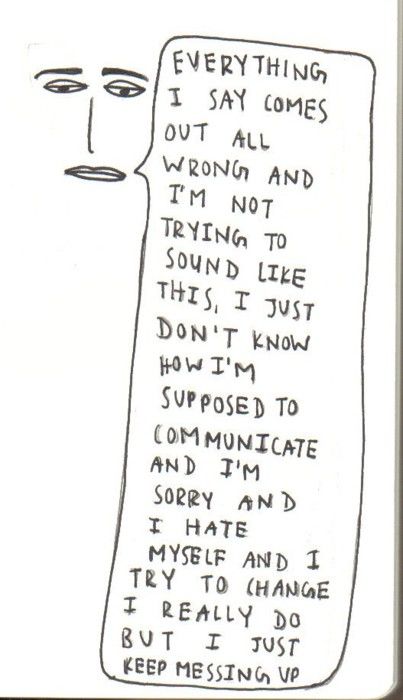 EVERYTHING
I SAY COMES
OUT ALL
WRONG AND
I'M NOT
TRYING TO
SOUND LIKE
THIS, I JUST
DON'T KNOW
HOW I'M
SUPPOSED TO
COMMUNICATE
AND I'M
SORRY AND
I HATE
MYSELF AND I
TRY TO CHANGE
I REALLY DO
BUT I JUST
KEEP MESSING UP